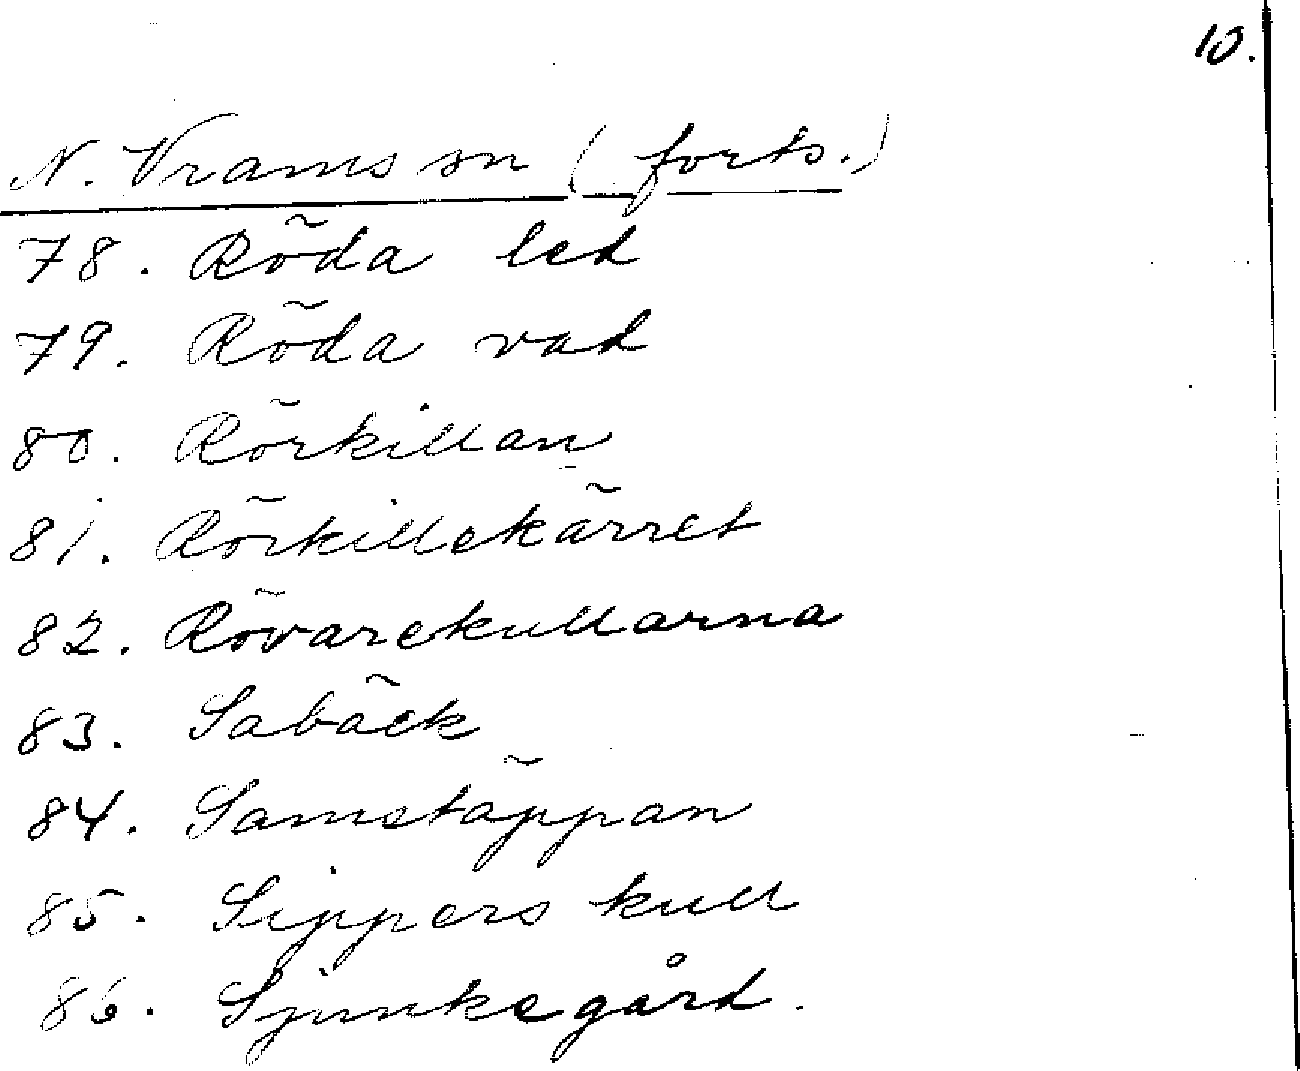 10.
N. Vrams sn (forts.)
78. Röda led
79. Röda vad
80. Rörkillan
81. Rörkillekärret
82. Rövarekullarna
83. Sabäck
84. Sametäppan
85. Sippers kull
86. Sjunkegård.